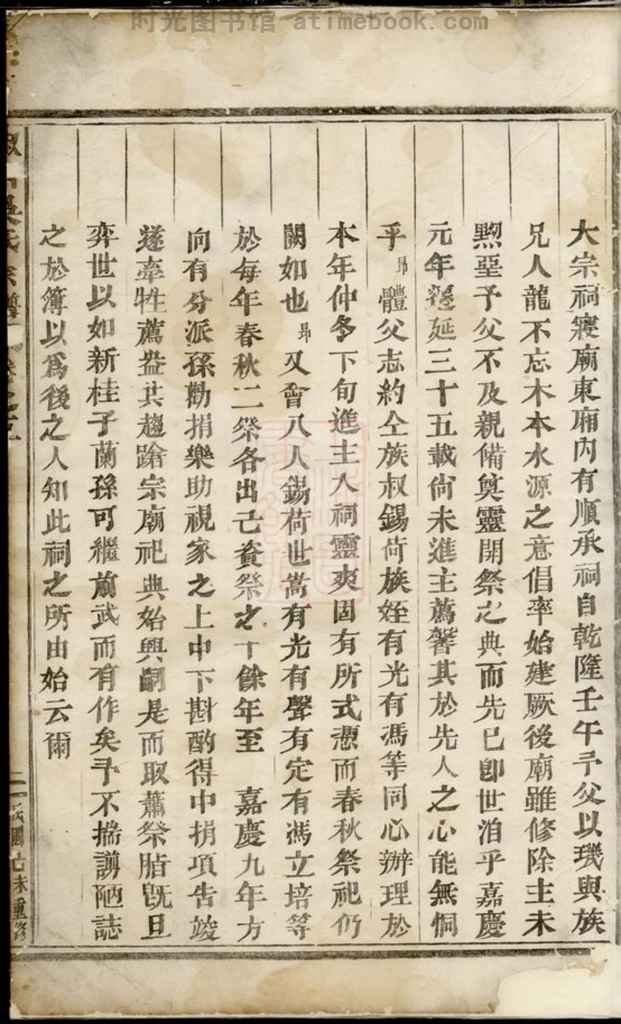 时光图书馆 atimebook.com
大宗祠寢廟東廂內有順承祠自乾隆壬午予父以璣與族
兄人龍不忘木本水源之意倡率始建厥後廟雖修除主未
黝堊予父不及親備奠靈開祭之典而先已卽世洎乎嘉慶
元年遷延三十五載尙未進主薦馨其於先人之心能無恫
乎昻體父志約仝族叔錫荷族姪有光有馮等同心辦理於
本年仲冬下旬進主入祠靈爽固有所式憑而春秋祭祀仍
闕如也昻又會八人錫荷世嵩有光有聲有定有馮立培等
於每年春秋二祭各出己資祭之十餘年至 嘉慶九年方
向有分派孫勸捐樂助視家之上中下斟酌得中捐項告竣
遂牽牲薦盎其趨蹌宗廟祀典始興嗣是而取蕭祭脂旣旦
弈世以如新桂子蘭孫可繼前武而有作矣予不揣譾陋誌
之於簿以爲後之人知此祠之所由始云爾
吳氏宗譜 二 民國 未重修